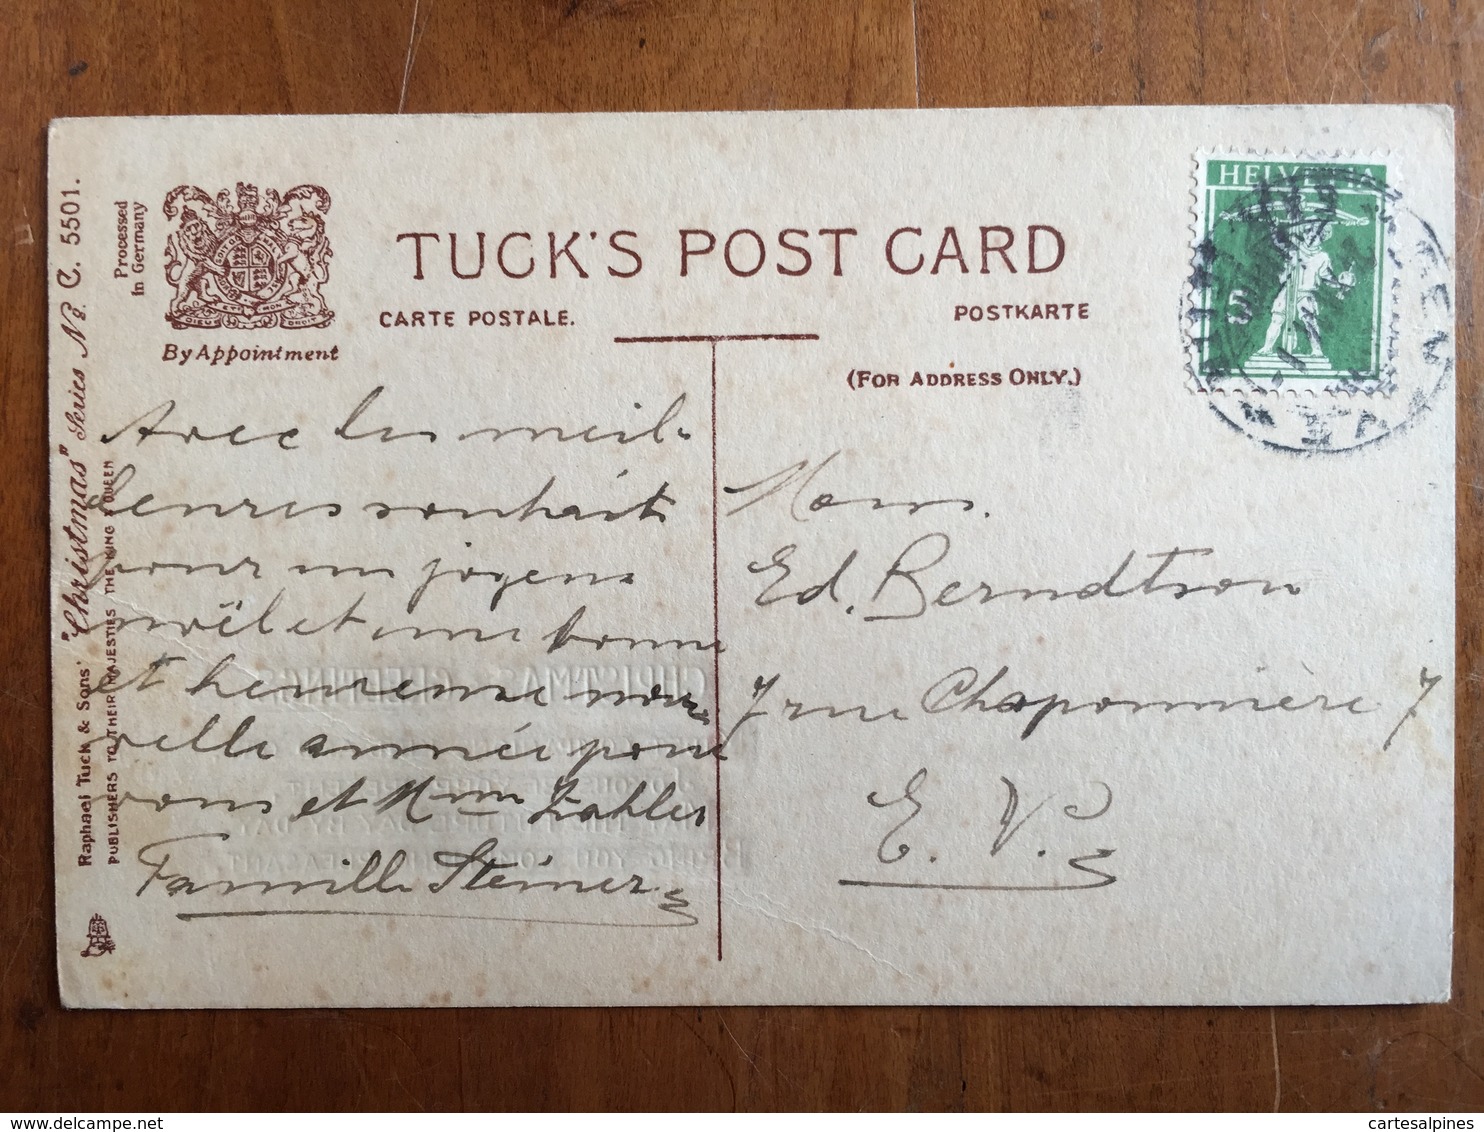 TUCK'S POST CARD
CARTE POSTALE.
POSTKARTE
(FOR ADDRESS ONLY.)
By Appointment
Processed
in Germany
Raphael Tuck & Sons' "Christmas" Series No. C. 5501.
PUBLISHERS TO THEIR MAJESTIES THE KING & QUEEN
HELVETIA
5
Avec les meil-
leures souhaits
pour un joyeux
noël et une bonne
et heureuse nou-
velle année pour
vous et Mme
Famille Steiner
CHRISTMAS GREETINGS
Mons.
Ed. Berndtson
7 rue Chaponnière 7
E. V.
cartesalpines